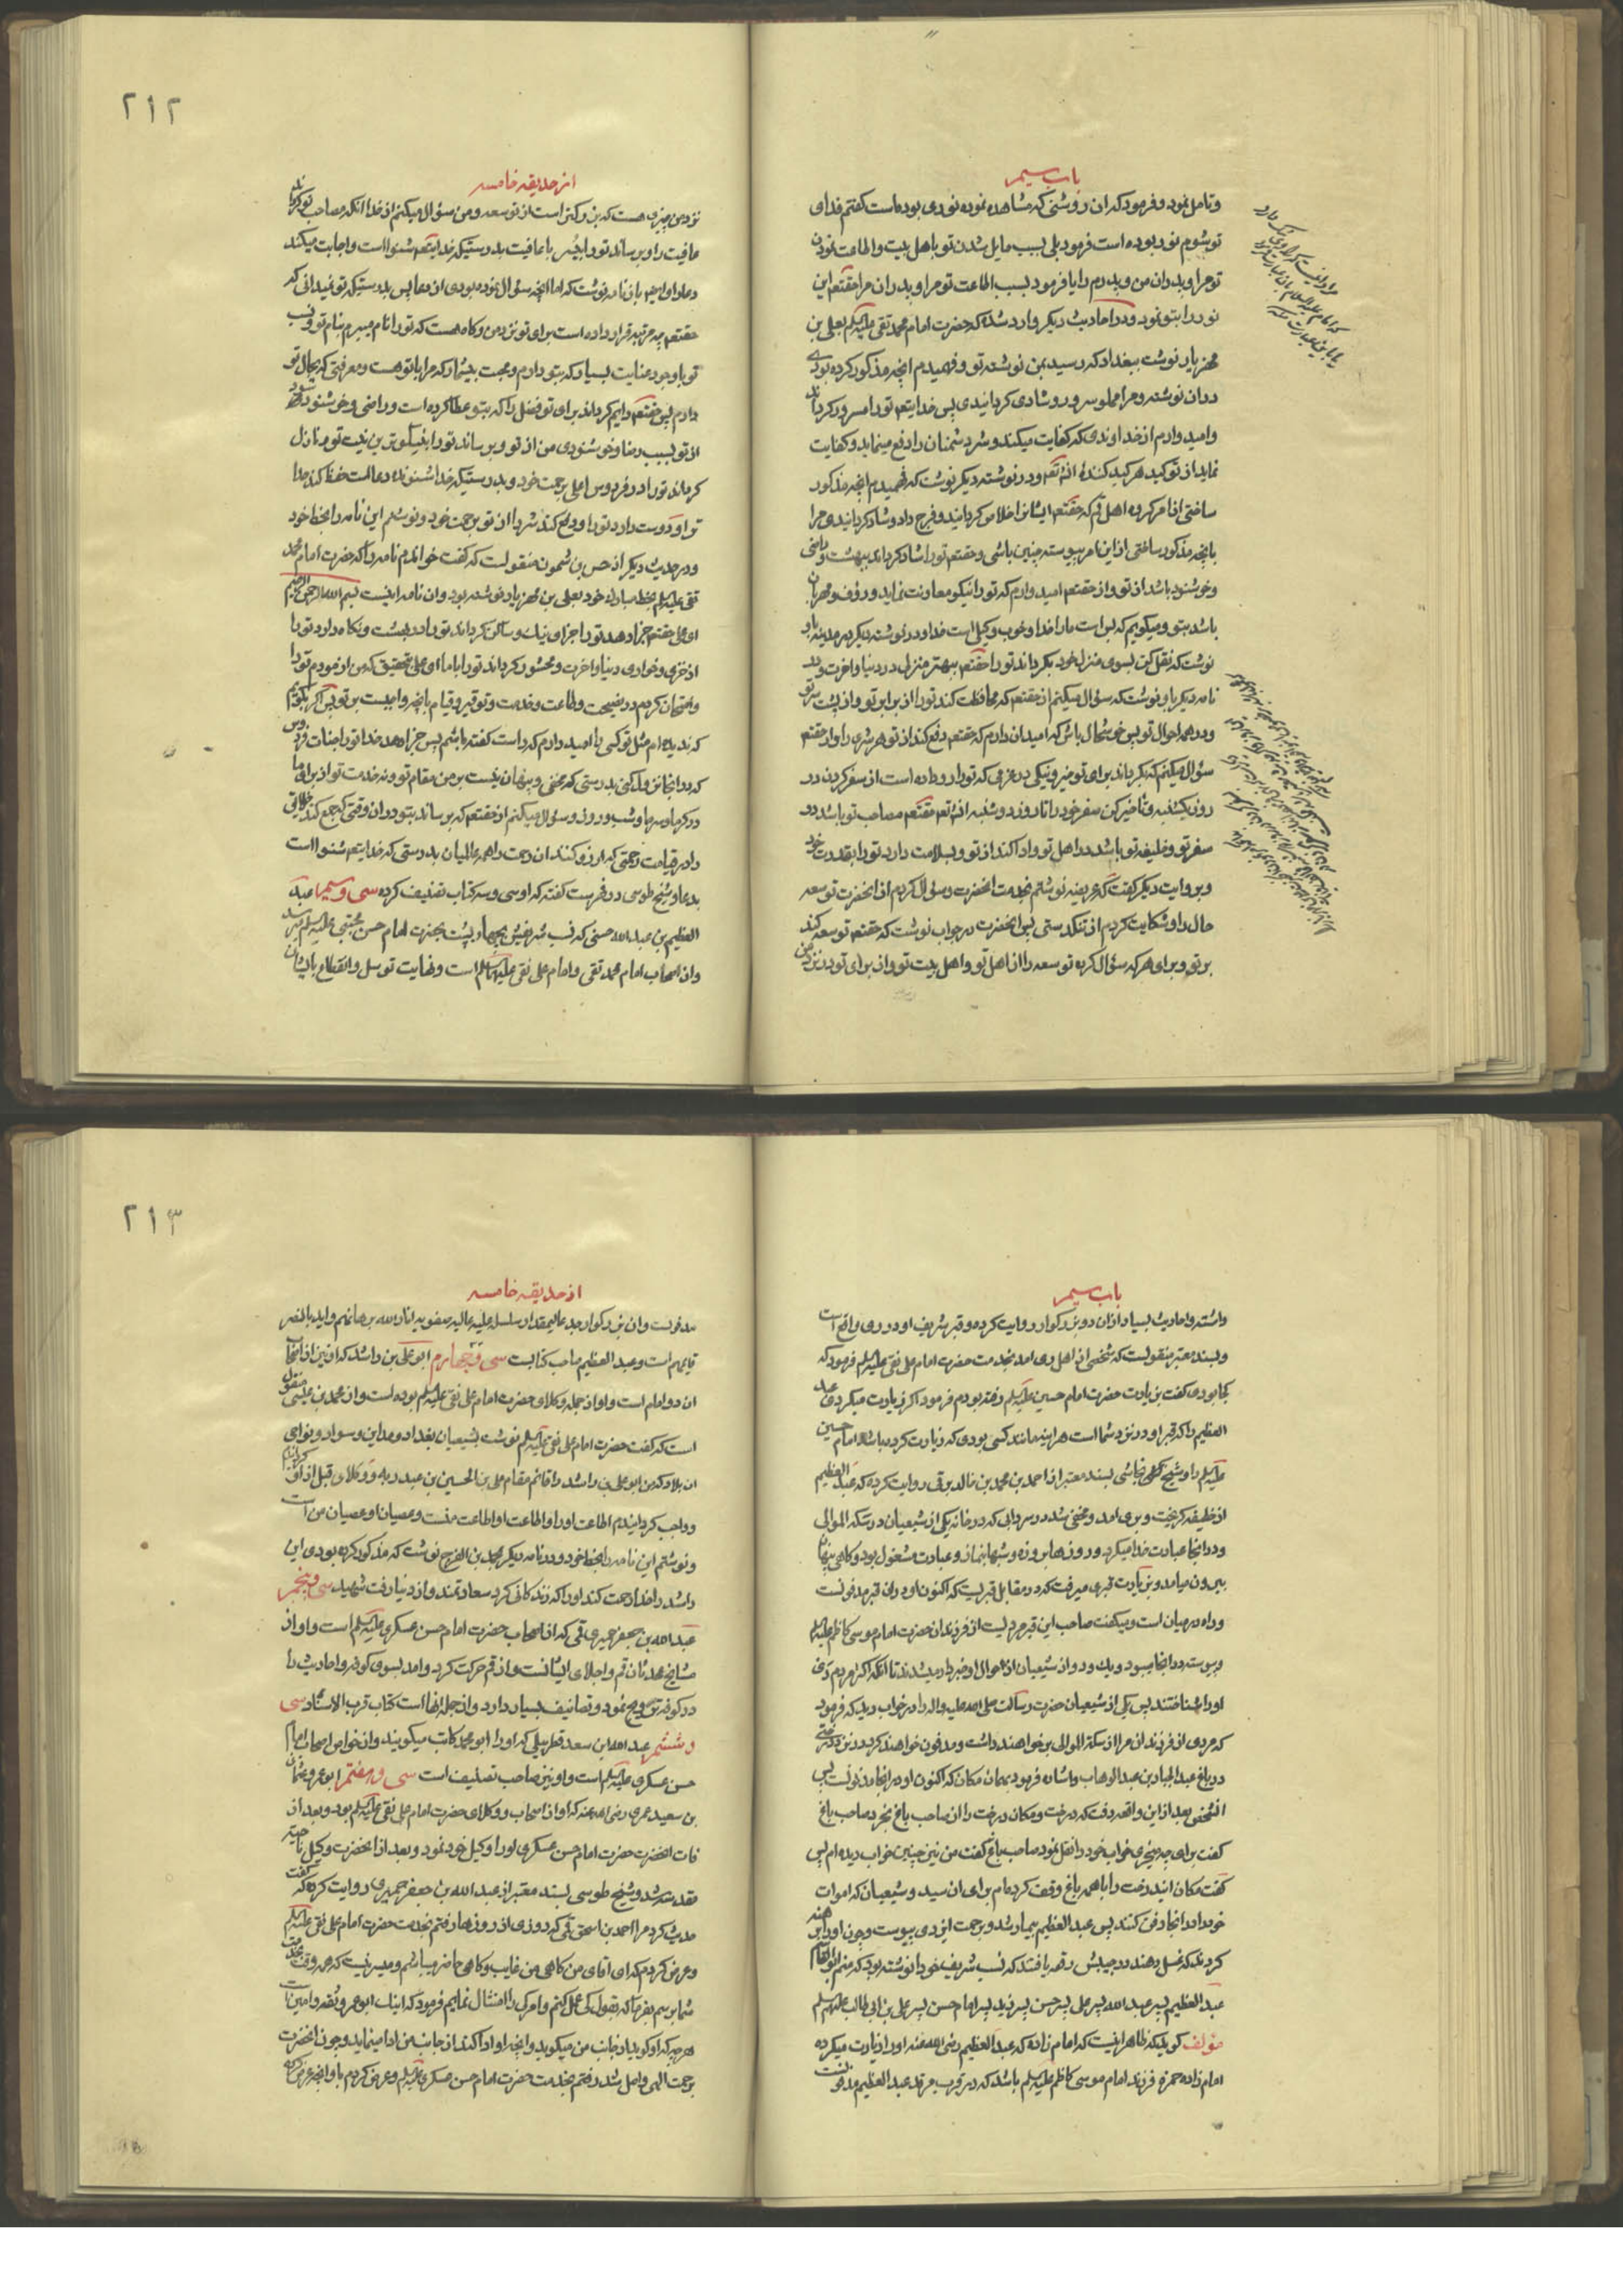 باب سیم
وتامل نمود و فرمود که ان روشنی که مشاهده نموده نوری بوده است کفتم فدای
تو شوم نور بوده است فرمود بلی بسبب مایل شدن تو باهل بیت و اطاعت نمودن
تو مرا و پدران من و پدرم را یا فرمود بسبب اطاعت تو مرا و پدران مرا حقتعم این
نور را بتو نمود و در احادیث دیکر وارد شده که حضرت امام محمد تقی علیه السلم بعلی بن
مهزیار نوشت ببغداد که رسید بمن نوشته تو و فهمیدم انچه مذکور کرده بودی
در ان نوشته و مرا مملو سرور و شادی کردانیدی پس خدایتعم تو را مسرور کرداند
و امید دارم از خداوندی که کفایت میکند و شر دشمنان را دفع مینماید و کفایت
نماید از تو کید هر کید کننده انشتعم و در نوشته دیکر نوشت که فهمیدم انچه مذکور
ساختی از امر کرده اهل قم که حقتعم ایشانرا خلاص کرداند و فرج داد و شاد کردانیدی مرا
بانچه مذکور ساختی از این امر پیوسته چنین باشی و حقتعم تو را شاد کرداند ببهشت و راضی
و خوشنود باشد از تو و از حقتعم امید دارم که تو را نیکو معاونت نماید و رؤف و مهربان
باشد بتو و میکویم که بس است مارا خدا و خوب وکیلی است خدا و در نوشته دیکر در مدینه باو
نوشت که نقل کن بسوی منزل خود بکرداند تو را حقتعم ببهتر منزلی در دنیا و اخرت و در
نامه دیکر باو نوشت که سؤال میکنم از حقتعم که محافظت کند تو را از برابر تو و از پشت سر تو
و در همه احوال تو پس خوشحال باش که امید ان دارم که حقتعم دفع کند از تو هر شری را و از حقتعم
سؤال میکنم که بکرداند برای تو خیر و نیکی در عزمی که تو را رو داده است از سفر کردن در
روز یکشنبه و تاخیر کن سفر خود را تا روز دوشنبه انشتعم حقتعم مصاحب تو باشد در
سفر تو و خلیفه تو باشد در اهل تو و ادا کند از تو و بسلامت دارد تو را بقدرت خود
و بروایت دیکر کفت که عریضه نوشتم بخدمت انحضرت و سؤال کردم از انحضرت توسعه
حال را و شکایت کردم از تنکدستی پس انحضرت در جواب نوشت که حقتعم توسعه کند
بر تو و برای هر که سؤال کرده توسعه را از اهل تو و اهل بیت تو و از برای تو در نزد من
۲۱۲
از حدیقه خامسه
نزد من چیزی هست که بزرکتر است از توسعه و من سؤال میکنم از خدا انکه مصاحب تو کرداند
عافیت را و برساند تو را بخیر با عافیت بدرستیکه خدایتعم شنوا است و اجابت میکند
دعا را و ایضا باو نامه نوشت که اما انچه سؤال نموده بودی از دعا پس بدرستیکه تو نمیدانی که
حقتعم چه مرتبه قرار داده است برای تو نزد من و کاه هست که تو را نام میبرم بنام تو و نسب
تو با وجود عنایت بسیار که بتو دارم و محبت بیشمار که مرا با تو هست و معرفتی که بحال تو
دارم پس حقتعم دایم کرداند برای تو فضلی را که بتو عطا کرده است و راضی و خوشنود شود
از تو بسبب رضا و خوشنودی من از تو و برساند تو را بنیکوترین نیت تو و نازل
کرداند تو را در فردوس اعلی برحمت خود و بدرستیکه خدا شنونده دعا است حفظ کند خدا
تو را و دوست دارد تو را و دفع کند شر را از تو برحمت خود و نوشتم این نامه را بخط خود
و در حدیث دیکر از حسن بن شمون منقولست که کفت خواندم نامه را که حضرت امام محمد
تقی علیه السلم بخط مبارک خود بعلی بن مهزیار نوشته بود و ان نامه اینست بسم الله الرحمن الرحیم
ای علی حقتعم جزا دهد تو را جزای نیک و ساکن کرداند تو را در بهشت و نکاه دارد تو را
از خزی و خواری دنیا و اخرت و محشور کرداند تو را با ما ای علی بتحقیق که من ازمودم تو را
و امتحان کردم در نصیحت و طاعت و خدمت و توقیر و قیام بانچه واجبست بر تو پس اکر بکویم
که ندیده ام مثل تو کسی را امید دارم که راست کفته باشم پس جزا دهد خدا تو را جنات فردوس
که در انجا نزول کنی بدرستی که مخفی و پنهان نیست بر من مقام تو و نه خدمت تو از برای ما
در کرما و سرما و شب و روز و سؤال میکنم از حقتعم که برساند بتو در ان وقتی که جمع کند خلایق
را در قیامت رحمتی که ارزو کنند ان رحمت را همه عالمیان بدرستی که خدایتعم شنوا است
بدعا و شیخ طوسی در فهرست کفته که او سی و سه کتاب تصنیف کرده سی و سیم عبد
العظیم بن عبدالله حسنی که نسب شریفش بچهار پشت بحضرت امام حسن مجتبی علیه السلم میرسد
و از اصحاب امام محمد تقی و امام علی نقی علیهما السلم است و نهایت توسل و انقطاع بایشان
باب سیم
داشته و احادیث بسیار از ان دو بزرکوار روایت کرده و قبر شریف او در ری واقع است
و بسند معتبر منقولست که شخصی از اهل ری امد بخدمت حضرت امام علی نقی علیه السلم فرمود که
کجا بودی کفت بزیارت حضرت امام حسین علیه السلم رفته بودم فرمود اکر زیارت میکردی عبد
العظیم را که قبر او در نزد شما است هراینه مانند کسی بودی که زیارت کرده باشد امام حسین
علیه السلم را و شیخ نجاشی بسند معتبر از احمد بن محمد بن خالد برقی روایت کرده که عبد العظیم
از خلیفه کریخت و بری امد و مخفی شد در سردابی که در خانه یکی از شیعیان در سکة الموالی
و در انجا عبادت خدا میکرد و روزها بروزه و شبها بنماز و عبادت مشغول بود و کاهی پنهان
بیرون میامد و بزیارت قبری میرفت که در مقابل قبریست که اکنون او در ان قبر مدفونست
و راه در میان است و میکفت صاحب این قبر مردیست از فرزندان حضرت امام موسی کاظم علیه السلم
و پیوسته در انجا میبود و یک و دو از شیعیان از احوال او خبردار میشدند تا انکه اکثر مردم ری
او را شناختند پس یکی از شیعیان حضرت رسالت صلی الله علیه و اله را در خواب دید که فرمود
که مردی از فرزندان مرا از سکة الموالی بر خواهند داشت و مدفون خواهند کرد در نزد درختی
در باغ عبد الجبار بن عبد الوهاب و اشاره فرمود بهمان مکان که اکنون او در انجا مدفونست پس
انشخص بعد از این واقعه رفت که درخت و مکان درخت را از صاحب باغ بخرد صاحب باغ
کفت برای چه میخری خواب خود را نقل نمود صاحب باغ کفت من نیز چنین خواب دیده ام پس
کفت مکان اندرخت را با همه باغ وقف کرده ام برای ان سید و شیعیان که اموات
خود را در انجا دفن کنند پس عبد العظیم بیمار شد و برحمت ایزدی پیوست و چون او را برهنه
کردند که غسل دهند در جیبش رقعه یافتند که نسب شریف خود را نوشته بود که منم ابو القاسم
عبد العظیم پسر عبد الله پسر علی پسر حسن پسر زید پسر امام حسن پسر علی بن ابی طالب علیهم السلم
مؤلف کوید که ظاهر اینست که امام زاده که عبد العظیم رضی الله عنه او را زیارت میکرده
امام زاده حمزه فرزند امام موسی کاظم علیه السلم باشد که در قرب مرقد عبد العظیم مدفونست
۲۱۳
از حدیقه خامسه
مدفونست و ان بزرکوار جد عالیمقدار سلسله علیه عالیه صفویه انار الله برهانهم و ایده بالنصر
قایمهم است و عبد العظیم صاحب کتابست سی و چهارم ابو علی بن راشد که او نیز از اصحاب
ان دو امام است و او از جمله وکلای حضرت امام علی نقی علیه السلم بوده است و از محمد بن عیسی منقول
است که کفت حضرت امام علی نقی علیه السلم نوشت بشیعیان بغداد و مداین و سواد و نواحی
ان بلاد که من ابو علی بن راشد را قائم مقام علی بن الحسین بن عبد ربه و وکلای قبل از او کردانیدم
و واجب کردانیدم اطاعت او را و اطاعت او اطاعت منست و عصیان او عصیان من است
و نوشتم این نامه را بخط خود و در نامه دیکر بمحمد بن الفرج نوشت که مذکور کرده بودی ابن
راشد را خدا رحمت کند او را که زندکانی کرد سعادتمند و از دنیا رفت شهید سی و پنجم
عبد الله بن جعفر حمیری قمی که از اصحاب حضرت امام حسن عسکری علیه السلم است و او از
مشایخ محدثان قم و اجلای ایشانست و از قم حرکت کرد و امد بسوی کوفه و احادیث را
در کوفه ترویج نمود و تصانیف بسیار دارد و از جمله انها است کتاب قرب الاسناد سی
و ششم عبد الله بن سعد قطربلی که او را ابو محمد کاتب میکویند و از خواص اصحاب امام
حسن عسکری علیه السلم است و او نیز صاحب تصنیف است سی و هفتم ابو عمرو عثمان
بن سعید عمری رضی الله عنه که او از اصحاب و وکلای حضرت امام علی نقی علیه السلم بود و بعد از
فات انحضرت حضرت امام حسن عسکری او را وکیل خود نمود و بعد از انحضرت وکیل ناحیه
مقدسه شد و شیخ طوسی بسند معتبر از عبد الله بن جعفر حمیری روایت کرده که کفت
حدیث کرد مرا احمد بن اسحق قمی که روزی از روزها رفتم بخدمت حضرت امام علی نقی علیه السلم
و عرض کردم که ای اقای من کاهی من غایب و کاهی حاضر میباشم و میسر نیست که هر وقت بخدمت
شما برسم بفرما که بقول کی عمل کنم و امر کی را امتثال نمایم فرمود که اینک ابو عمرو ثقه و امین است
هر چه که او کوید از جانب من میکوید و انچه او ادا کند از جانب من ادا مینماید و چون انحضرت
برحمت الهی واصل شد رفتم بخدمت حضرت امام حسن عسکری علیه السلم و عرض کردم باو انچه عرض کرده